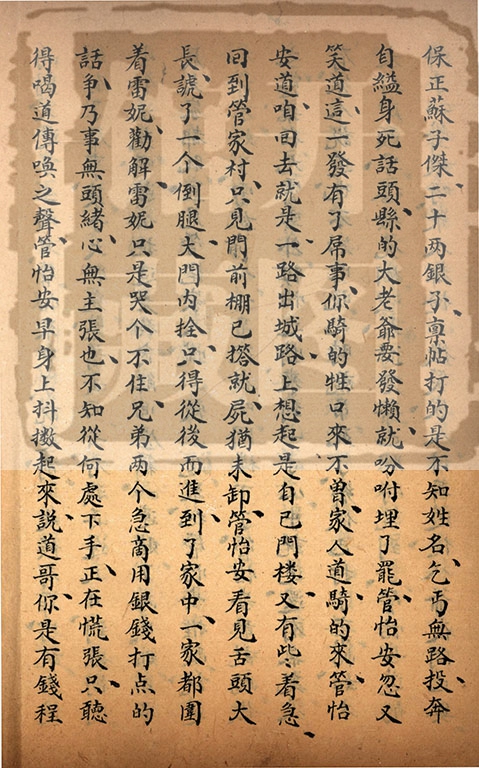 保正蘇子傑二十两銀子、禀帖打的是不知姓名乞丐無路投奔
自縊身死話頭、縣的大老爺要發懒、就吩咐埋了罷、管怡安忽又
笑道、這𠮟發有了屌事、你騎的牲口來不曽、家人道、騎的來、管怡
安道、咱回去就是、一路出城、路上想起是自已門楼、又有些々着急、
回到管家村、只見門前棚已搭就、屍猶未卸、管怡安看見舌頭大
長、諕了一个倒腿、大門内拴、只得從後而進、到了家中、一家都圍
着雷妮勸解、雷妮只是哭个不住、兄弟两个急商用銀錢打点的
話、争乃事無頭緒、心無主張也、不知從何處下手、正在慌張、只聽
得喝道傳唤之聲、管怡安早身上抖擞起來、說道、哥、你是有錢程